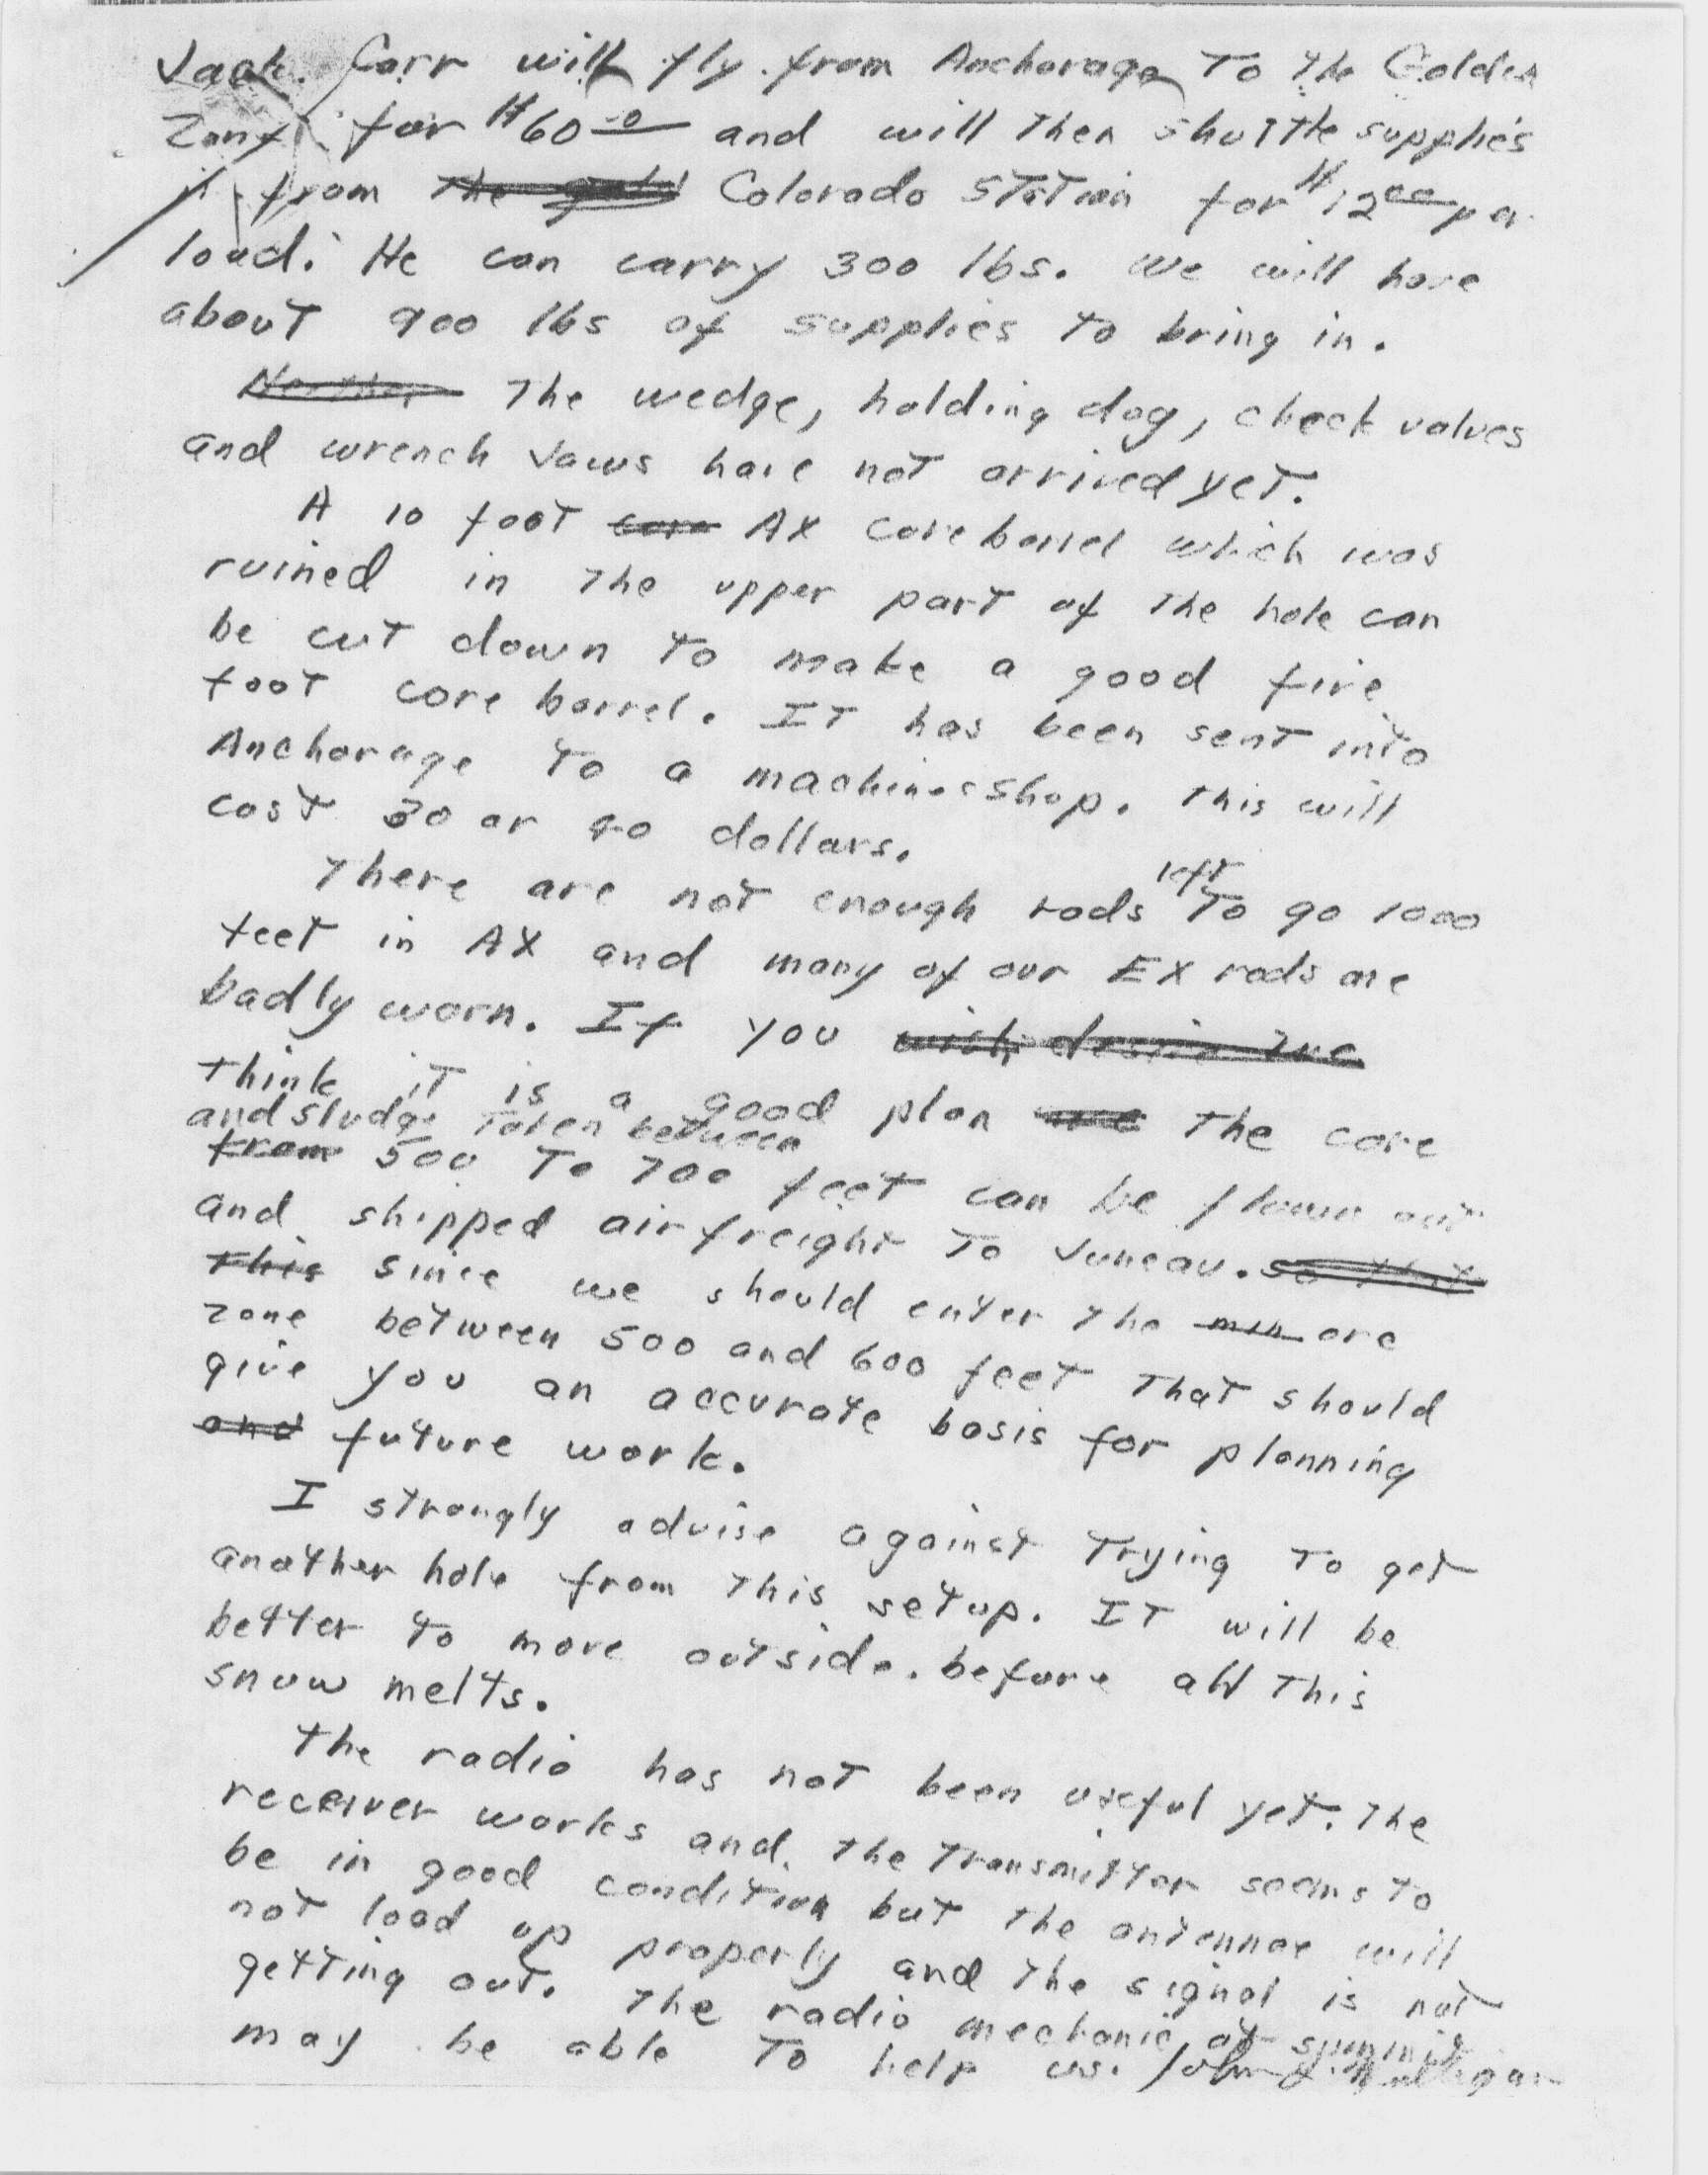 Jack Carr will fly from Anchorage To the Golden
Zone for $60.00 and will then shuttle supplies
in from the gold Colorado Station for $12.00 per
load. He can carry 300 lbs. We will have
about 900 lbs of supplies to bring in.
The wedge, holding dog, check valves
and wrench Jaws have not arrived yet.
A 10 foot core AX core barrel which was
ruined in the upper part of the hole can
be cut down to make a good five
foot core barrel. It has been sent into
Anchorage to a machine shop. This will
cost 30 or 40 dollars.
There are not enough rods left To go 1000
feet in AX and many of our EX rods are
badly worn. If you wish desire the
think it is a good plan the core
and sludge Taken between
from 500 To 700 feet can be flown out
and shipped airfreight To Juneau. so that
this since we should enter the min ore
zone between 500 and 600 feet That should
give you an accurate basis for planning
and future work.
I strongly advise against Trying To get
another hole from This setup. IT will be
better to move outside. before all This
snow melts.
The radio has not been useful yet. The
receiver works and. the Transmitter seems To
be in good condition but the antennae will
not load up properly and the signal is not
getting out. The radio mechanic at summit
may be able To help us. John J. Mulligan